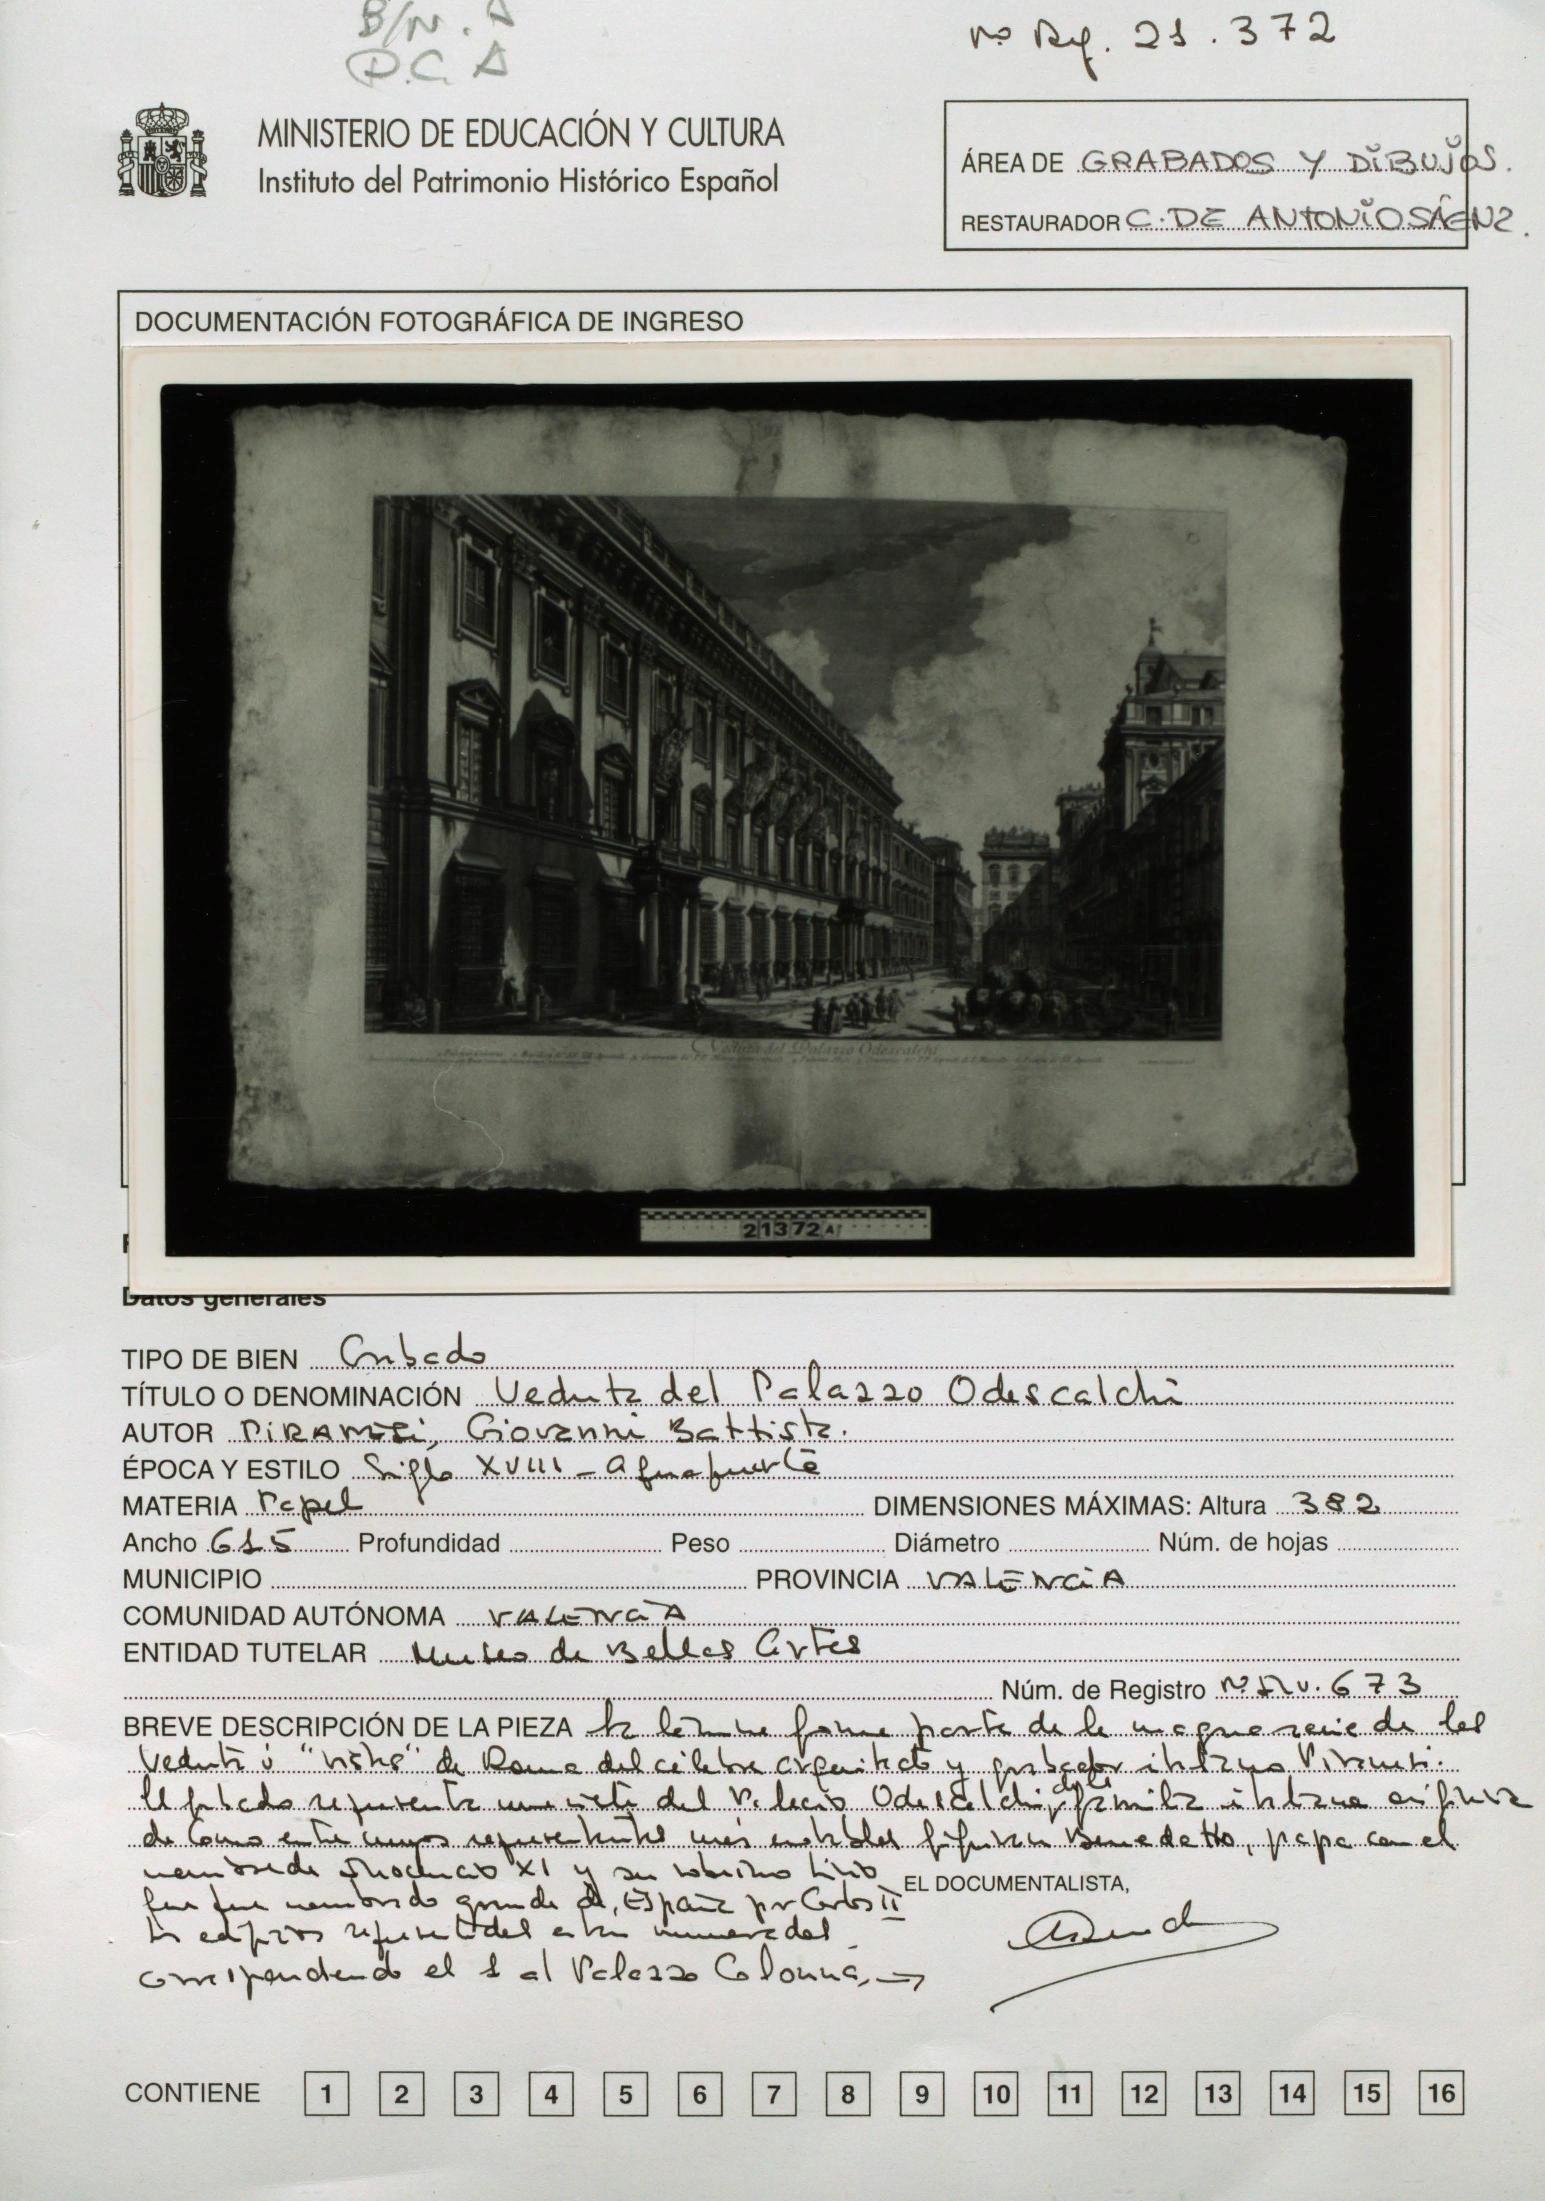 B/N. A
D.C. A
nº Reg. 21.372
MINISTERIO DE EDUCACIÓN Y CULTURA
Instituto del Patrimonio Histórico Español
ÁREA DE GRABADOS Y DIBUJOS.
RESTAURADOR C. DE ANTONIO SÁENZ.
DOCUMENTACIÓN FOTOGRÁFICA DE INGRESO
Veduta del Palazzo Odescalchi
21372 A
Datos generales
TIPO DE BIEN Grabado
TÍTULO O DENOMINACIÓN Veduta del Palazzo Odescalchi
AUTOR PIRANESI, Giovanni Battista.
ÉPOCA Y ESTILO Siglo XVIII - Aguafuerte
MATERIA Papel DIMENSIONES MÁXIMAS: Altura 382
Ancho 615 Profundidad Peso Diámetro Núm. de hojas
MUNICIPIO PROVINCIA VALENCIA
COMUNIDAD AUTÓNOMA VALENCIA
ENTIDAD TUTELAR Museo de Bellas Artes
Núm. de Registro Nº INV. 673
BREVE DESCRIPCIÓN DE LA PIEZA La lámina forma parte de la magna serie de las
Vedute o "vistas" de Roma del célebre arquitecto y grabador italiano Piranesi.
El grabado representa una vista del Palacio Odescalchi, de la familia italiana
de Como entre cuyos representantes más notables figuran Benedetto, papa con el
nombre de Inocencio XI y su sobrino Livio
que fue nombrado grande de España por Carlos II
Los edificios representados están numerados
correspondiendo el 1 al Palazzo Colonna, →
EL DOCUMENTALISTA,
CONTIENE 1 2 3 4 5 6 7 8 9 10 11 12 13 14 15 16